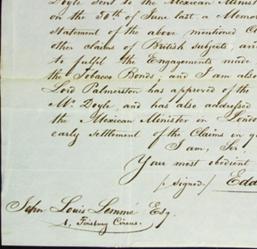 Doyle sent to the Mexican Minist
on the 30th of June last, a Memor
Statement of the above mentioned Co
other claims of British subjects, an
to fulfil the Engagements made
the Tobacco Bonds; and I am also
Lord Palmerston has approved of the
Mr. Doyle, and has also addressed
the Mexican Minister in Londo
early Settlement of the Claims in q
I am, Sir,
Your most obedient
(Signed) Edd
John Louis Lemmé Esq.
4, Finsbury Circus.